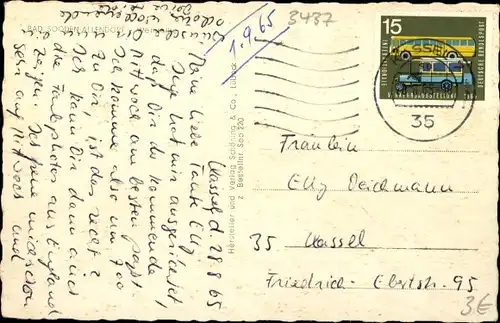 BAD SOODEN-ALLENDORF
1.9.65
3437
15
DEUTSCHE BUNDESPOST
35
Kassel d. 28.8.65
Meine liebe Tante Elly,
Inge hat mir ausgerichtet,
daß Dir der kommende
Mittwoch am besten passt.
Ich komme also um 700
zu Dir, ist das recht?
Ich kann Dir dann auch
die Farbphotos aus England
zeigen. Ich freue mich schon
sehr auf Mittwoch und
Hersteller und Verlag Schöning & Co., Lübeck
Bestellnr. Soo 220
Fräulein
Elly Deichmann
35 Kassel
Friedrich-Ebertstr. 95
3€